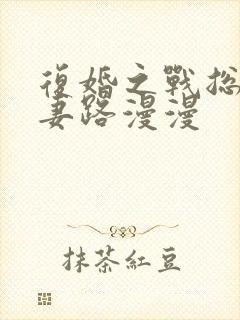 復婚之戰总
妻路漫漫
抹茶紅豆